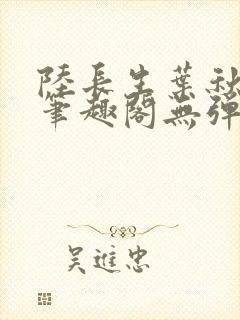 陸長生葉秋
筆趣閣無彈
吳進忠